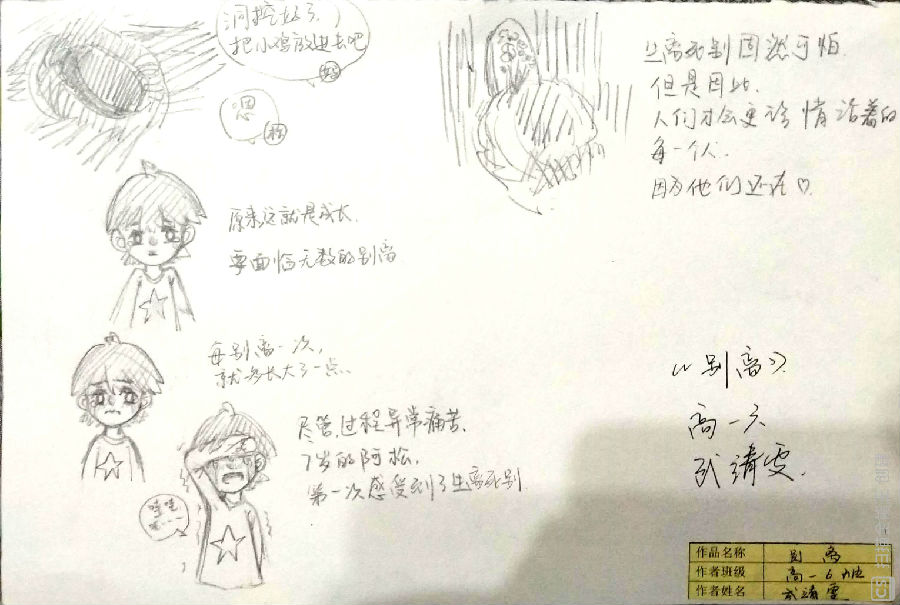 洞挖好了，
把小鸡放进去吧
妈
嗯
松
原来这就是成长，
要面临无数的别离
每别离一次，
就多长大了一点..
尽管，过程异常痛苦，
7岁的阿松，
第一次感受到了生离死别
哇哇
生离死别固然可怕.
但是因此，
人们才会更珍惜活着的
每一个人.
因为他们还在♡.
《别离》
高一六
武靖雯.
作品名称 别离
作者班级 高一6班
作者姓名 武靖雯